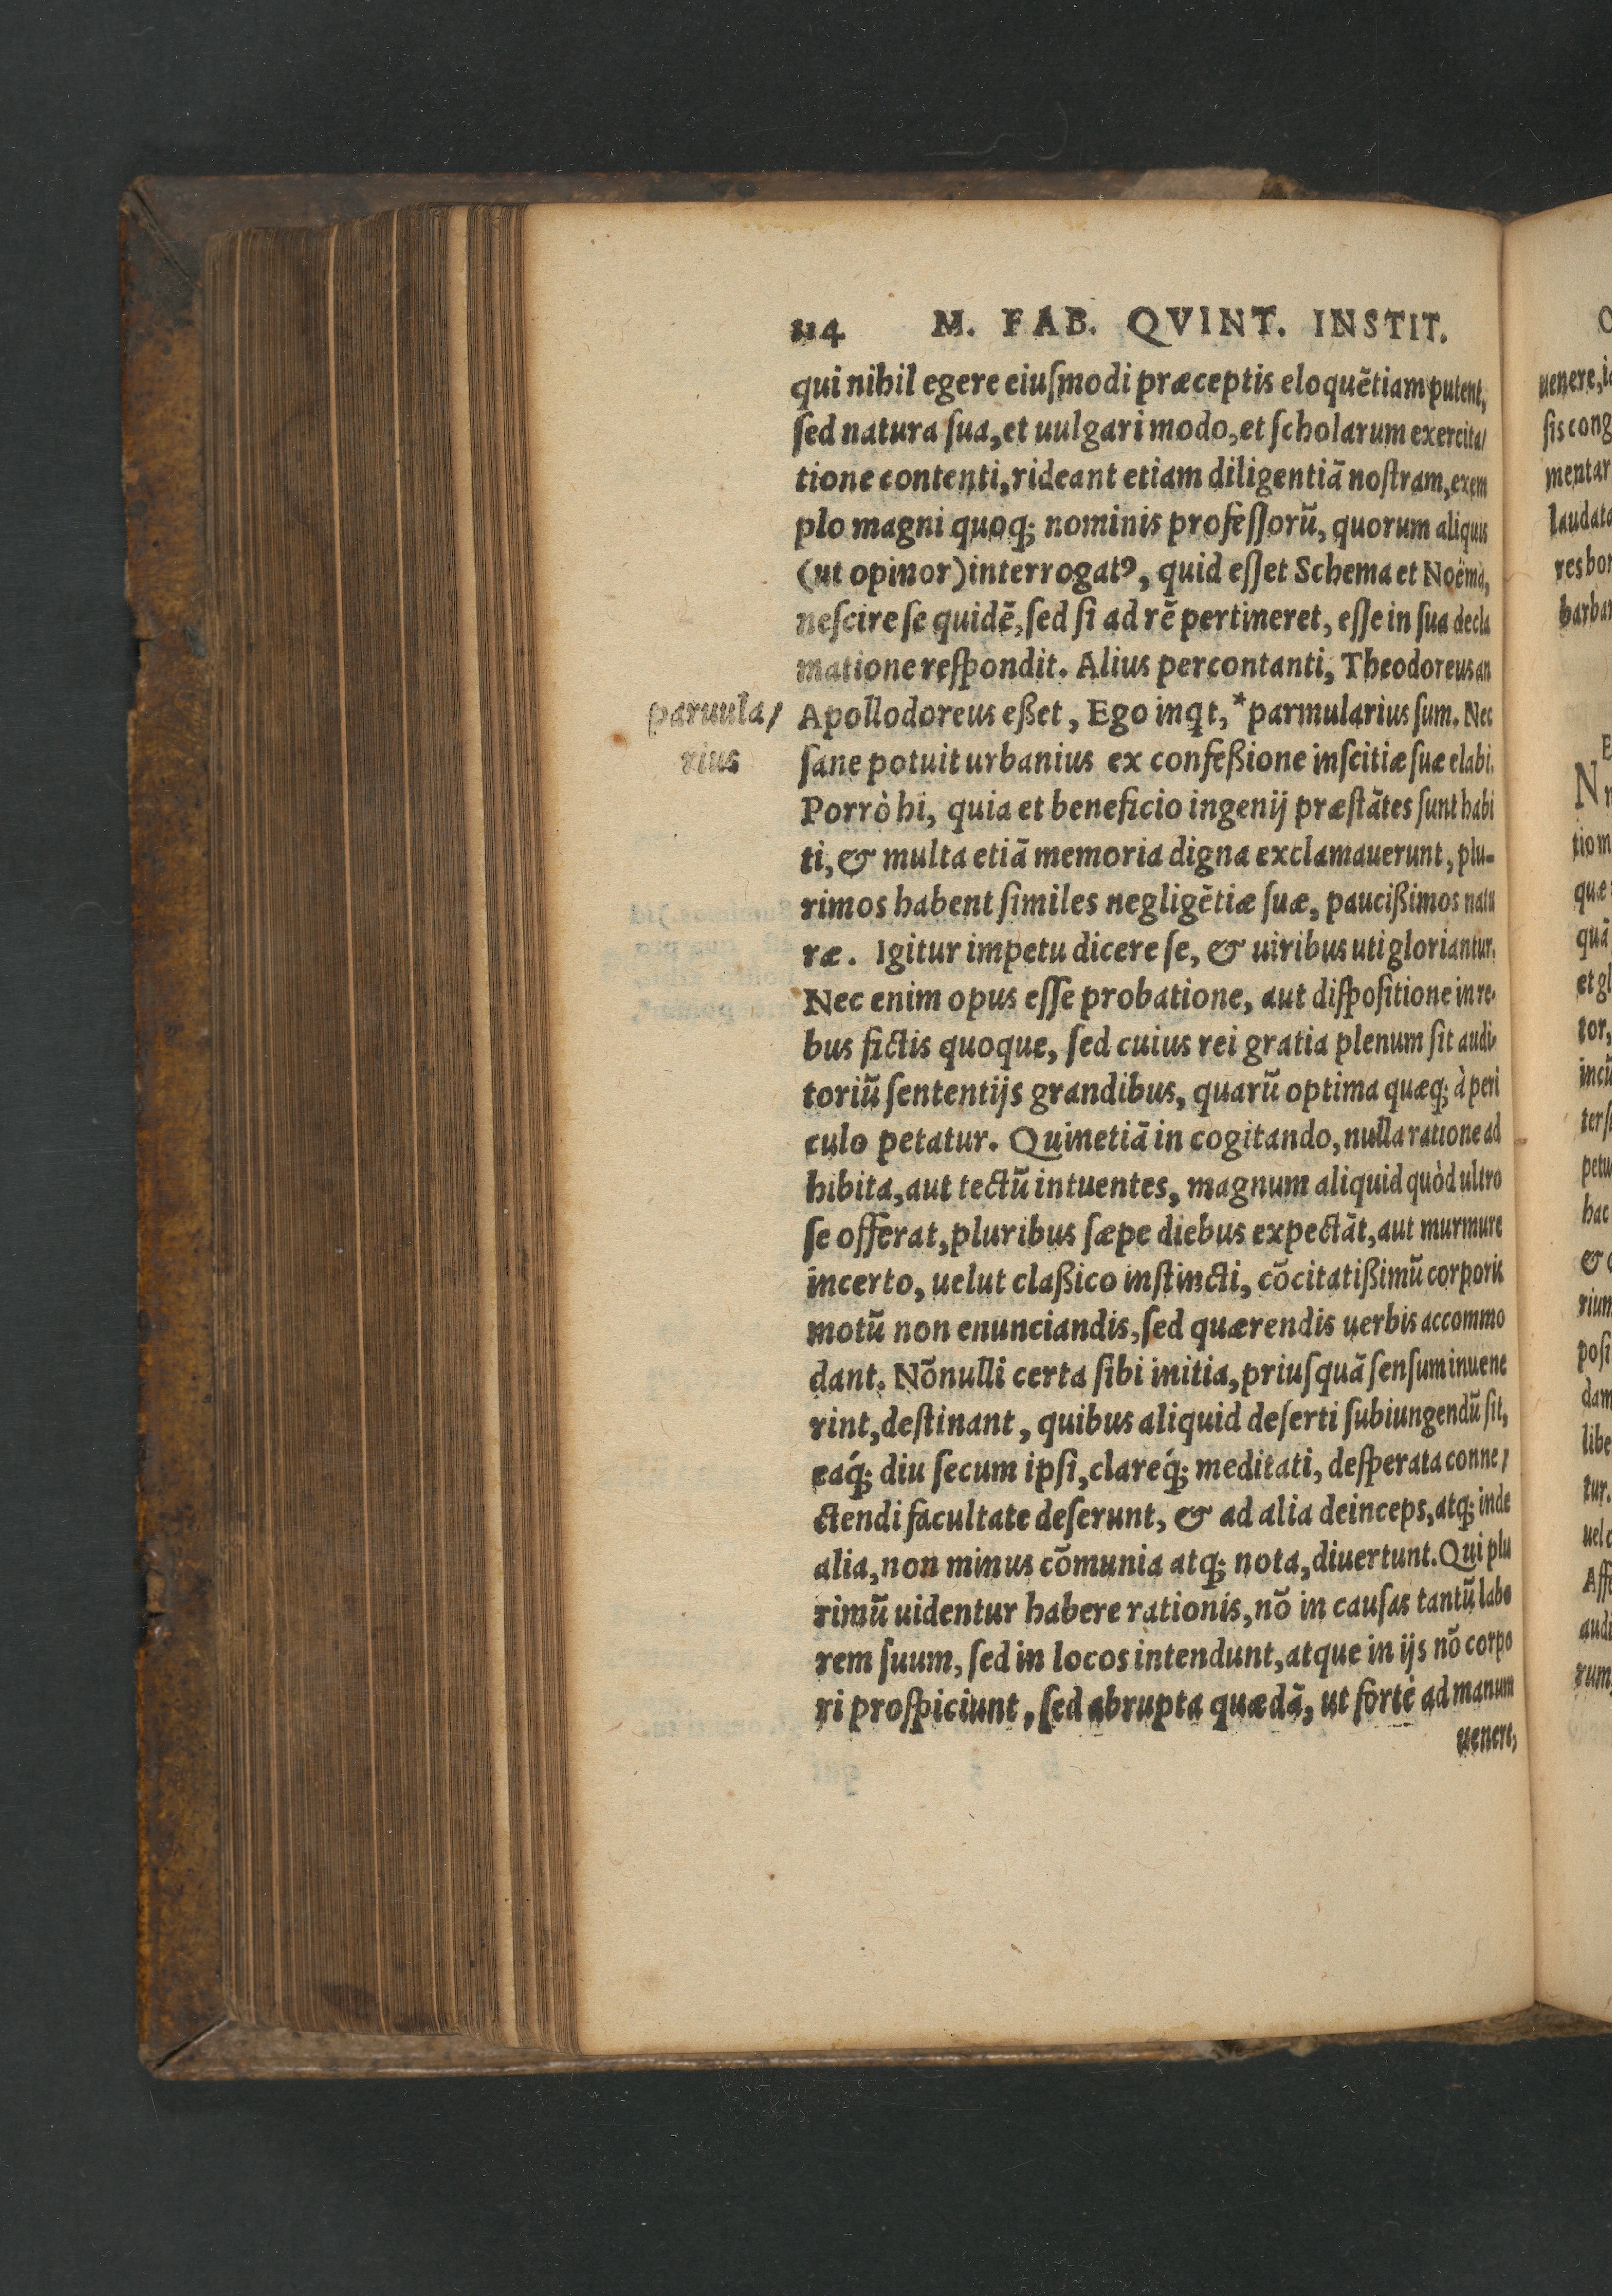 114 M. FAB. QVINT. INSTIT.
qui nihil egere eiuſmodi præceptis eloquẽtiam putent,
ſed natura ſua, et uulgari modo, et ſcholarum exercita/
tione contenti, rideant etiam diligentiã noſtram, exem
plo magni quoq; nominis profeſſorũ, quorum aliquis
(ut opinor) interrogatꝰ, quid eſſet Schema et Noëma,
neſcire ſe quidẽ, ſed ſi ad rẽ pertineret, eſſe in ſua decla
matione reſpondit. Alius percontanti, Theodoreus an
paruula/
rius
Apollodoreus eßet, Ego inqt, *parmularius ſum. Nec
ſane potuit urbanius ex confeßione inſcitiæ ſuæ elabi.
Porrò hi, quia et beneficio ingenij præſtãtes ſunt habi
ti, & multa etiã memoria digna exclamauerunt, plu-
rimos habent ſimiles negligẽtiæ ſuæ, paucißimos natu
ræ. Igitur impetu dicere ſe, & uiribus uti gloriantur.
Nec enim opus eſſe probatione, aut diſpoſitione in re-
bus fictis quoque, ſed cuius rei gratia plenum ſit audi-
toriũ ſententijs grandibus, quarũ optima quæq; à peri
culo petatur. Quinetiã in cogitando, nulla ratione ad
hibita, aut tectũ intuentes, magnum aliquid quòd ultro
ſe offerat, pluribus ſæpe diebus expectãt, aut murmure
incerto, uelut claßico inſtincti, cõcitatißimũ corporis
motũ non enunciandis, ſed quærendis uerbis accommo
dant. Nõnulli certa ſibi initia, priuſquã ſenſum inuene
rint, deſtinant, quibus aliquid deſerti ſubiungendũ ſit,
eaq́; diu ſecum ipſi, clareq́; meditati, deſperata conne/
ctendi facultate deſerunt, & ad alia deinceps, atq; inde
alia, non minus cõmunia atq; nota, diuertunt. Qui plu
rimũ uidentur habere rationis, nõ in cauſas tantũ labo
rem ſuum, ſed in locos intendunt, atque in ijs nõ corpo
ri proſpiciunt, ſed abrupta quædã, ut fortè ad manum
uenere,
uenere,
ſis
mentar
laudata
res
tio
quæ
quã
et
tor,
hac
&
dam
tur.
uel
rum,